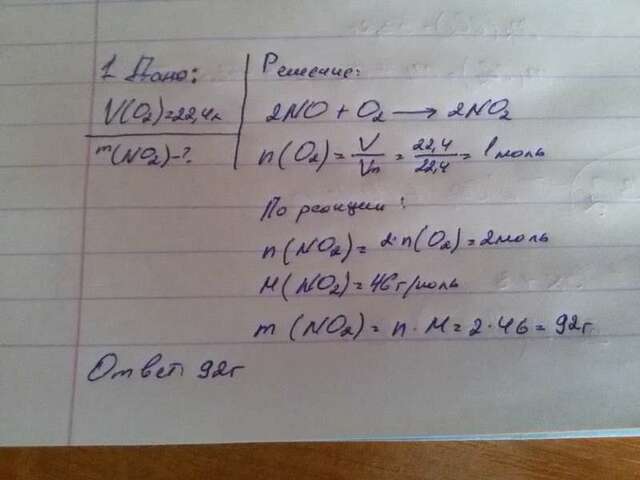 1 Дано:
V(O₂)=22,4л
m(NO₂)-?
Решение:
2NO + O₂ → 2NO₂
n(O₂) = V/Vn = 22,4/22,4 = 1 моль
По реакции:
n(NO₂) = 2·n(O₂) = 2моль
M(NO₂) = 46 г/моль
m(NO₂) = n·M = 2·46 = 92г
Ответ: 92г